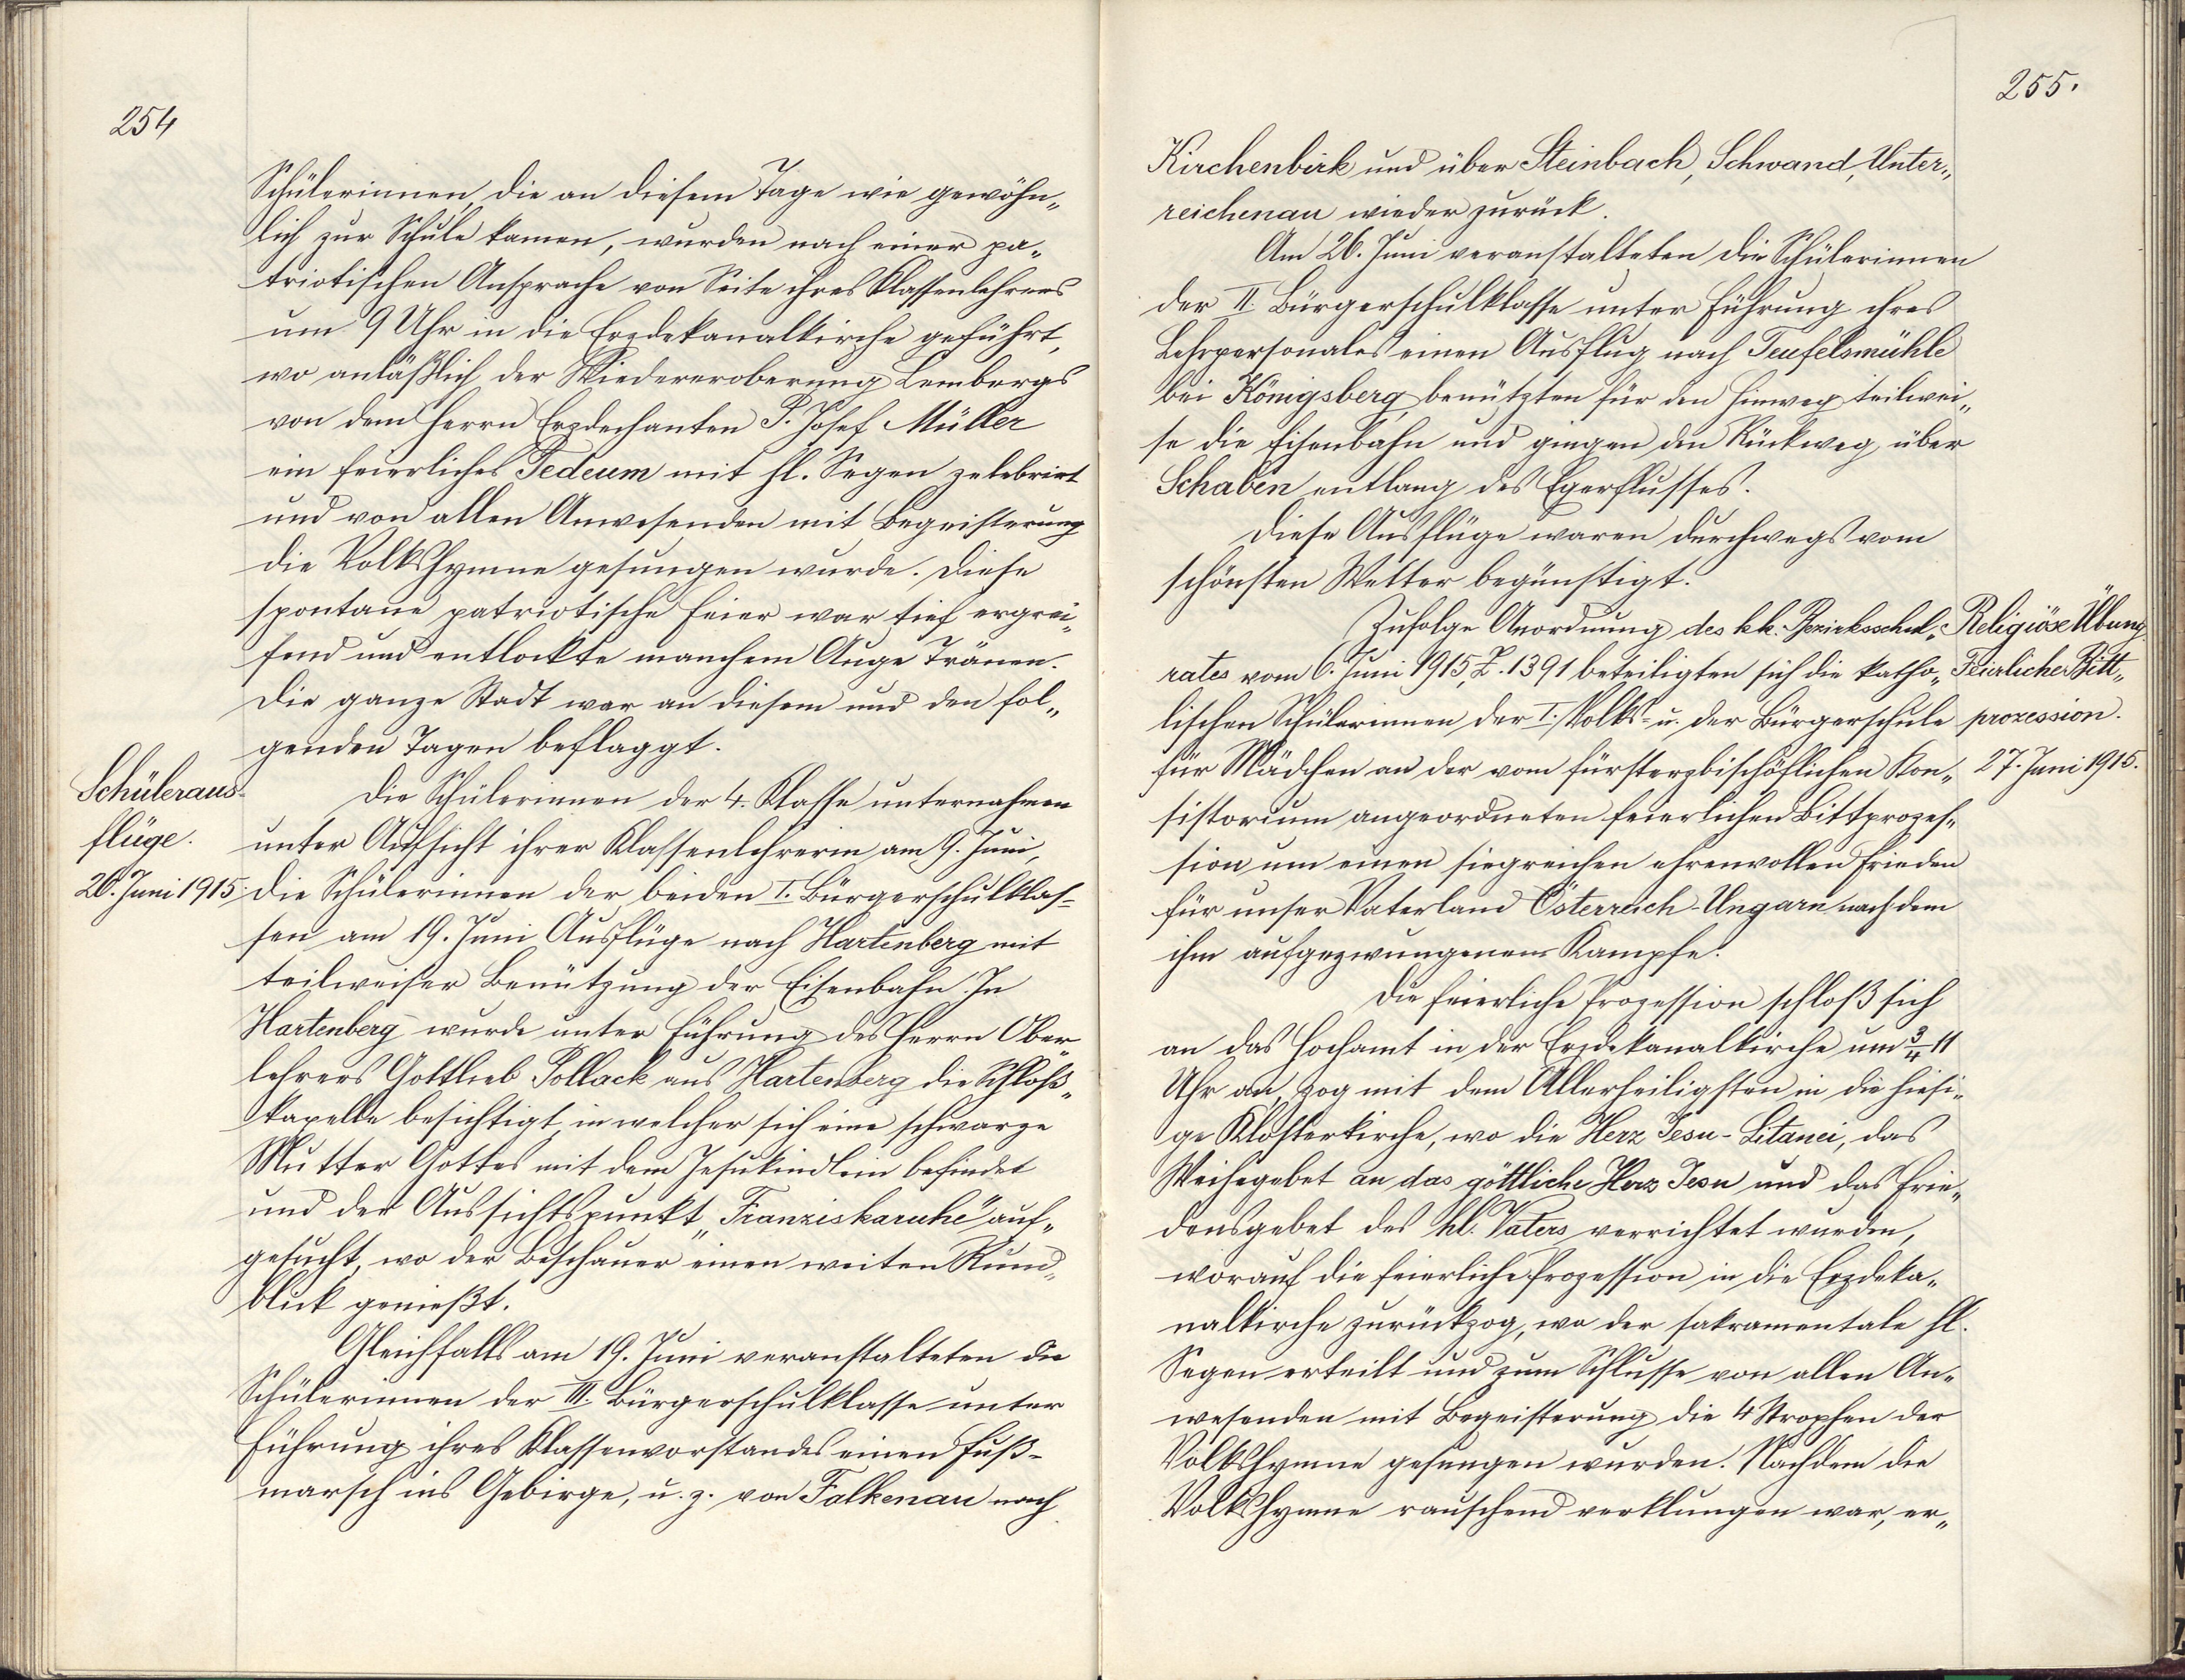 254
Schülerinnen, die an diesem Tage wie gewöhn„
lich zur Schule kamen, wurden nach einer pa„
triotischen Ansprache von Seite ihres Klassenlehrers
um 9 Uhr in die Erzdekanalkirche geführt,
wo anläßlich der Wiedereroberung Lembergs
von dem Herrn Erzdechanten P. Josef Müller
ein feierliches Tedeum mit hl. Segen zelebriert
und von allen Anwesenden mit Begeisterung
die Volkshymne gesungen wurde. Diese
spontane patriotische Feier war tief ergrei„
fend und entlockte manchem Auge Tränen.
Die ganze Stadt war an diesem und den fol„
genden Tagen beflaggt.
Schüleraus-
flüge.
26. Juni 1915.
Die Schülerinnen der 4. Klasse unternahmen
unter Aufsicht ihrer Klassenlehrerin am 9. Juni,
die Schülerinnen der beiden I. Bürgerschulklas-
sen am 19. Juni Ausflüge nach Hartenberg mit
teilweiser Benützung der Eisenbahn. In
Hartenberg wurde unter Führung des Herrn Ober„
lehrers Gottlieb Pollack aus Hartenberg die Schloß„
kapelle besichtigt, in welcher sich eine schwarze
Mutter Gottes mit dem Jesukindlein befindet
und der Aussichtspunkt „Franziskaruhe" auf„
gesucht, wo der Beschauer einen weiten Rund„
blick genießt.
Gleichfalls am 19. Juni veranstalteten die
Schülerinnen der III. Bürgerschulklasse unter
Führung ihres Klassenvorstandes einen Fuß-
marsch ins Gebirge, u. z. von Falkenau nach
255.
Kirchenbirk und über Steinbach, Schwand, Unter„
reichenau wieder zurück.
Am 26. Juni veranstalteten die Schülerinnen
der II. Bürgerschulklasse unter Führung ihres
Lehrpersonales einen Ausflug nach Teufelsmühle
bei Königsberg, benützten für den Hinweg teilwei„
se die Eisenbahn und gingen den Rückweg über
Schaben entlang des Egerflusses.
Diese Ausflüge waren durchwegs vom
schönsten Wetter begünstigt.
Zufolge Anordnung des k.k. Bezirksschul„
rates vom 6. Juni 1915, Z. 1391 beteiligten sich die katho„
lischen Schülerinnen der I. Volks- u. der Bürgerschule
für Mädchen an der vom fürsterzbischöflichen Kon„
sistorium angeordneten feierlichen Bittprozes„
sion um einen siegreichen ehrenvollen Frieden
für unser Vaterland Österreich-Ungarn nach dem
ihm aufgezwungenen Kampfe.
Religiöse Übung.
Feierliche Bitt„
prozession.
27. Juni 1915.
Die feierliche Prozession schloß sich
an das Hochamt in der Erzdekanalkirche um 3/4 11
Uhr an, zog mit dem Allerheiligsten in die hiesi„
ge Klosterkirche, wo die Herz Jesu-Litanei, das
Weihegebet an das göttliche Herz Jesu und das Frie„
densgebet des hl. Vaters verrichtet wurden,
worauf die feierliche Prozession in die Erzdeka„
nalkirche zurückzog, wo der sakramentale hl.
Segen erteilt und zum Schlusse von allen An„
wesenden mit Begeisterung die 4 Strophen der
Volkshymne gesungen wurden. Nachdem die
Volkshymne rauschend verklungen war, er„